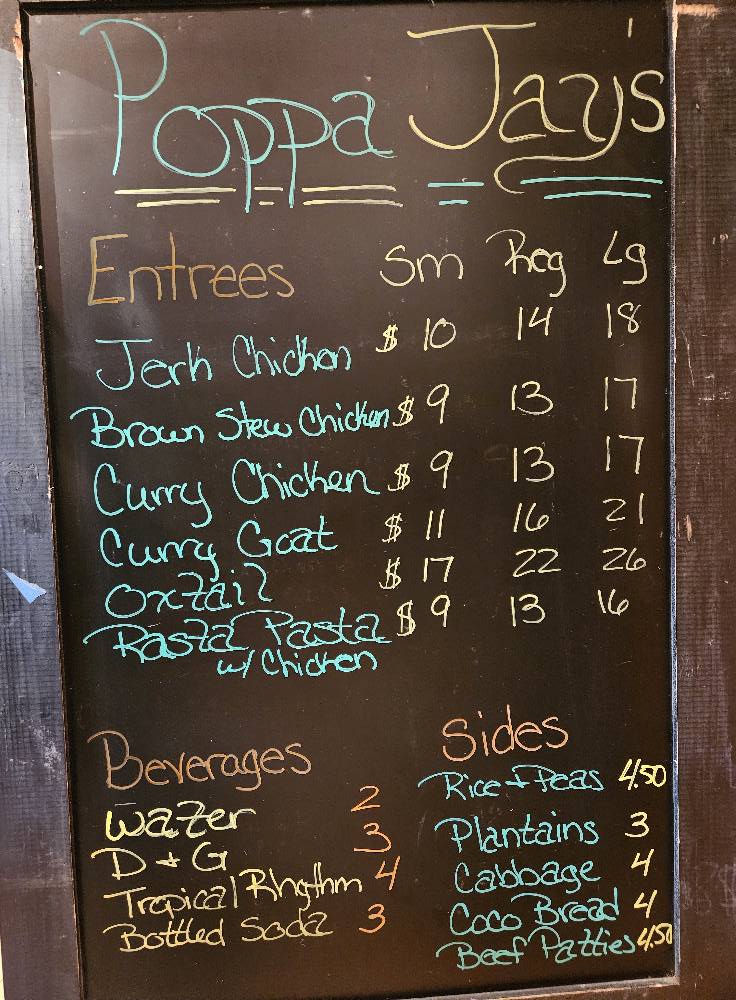 Poppa Jay's
Entrees Sm Reg Lg
Jerk Chicken $ 10 14 18
Brown Stew Chicken $ 9 13 17
Curry Chicken $ 9 13 17
Curry Goat $ 11 16 21
Oxtail $ 17 22 26
Rasta Pasta $ 9 13 16
w/ Chicken
Beverages
Water 2
D + G 3
Tropical Rhythm 4
Bottled Soda 3
Sides
Rice + Peas 4.50
Plantains 3
Cabbage 4
Coco Bread 4
Beef Patties 4.50